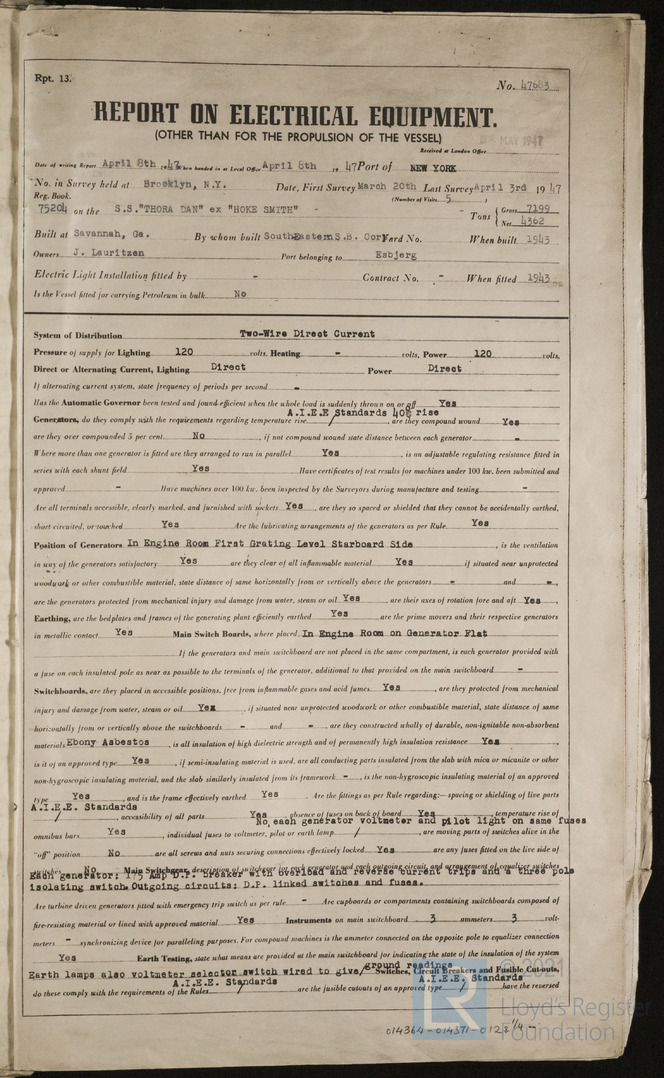 Rpt. 13.
No. 47663
REPORT ON ELECTRICAL EQUIPMENT.
(OTHER THAN FOR THE PROPULSION OF THE VESSEL)
MAY 1947
Received at London Office
Date of writing Report April 8th 1947 When handed in at Local Office April 8th 1947 Port of NEW YORK
No. in Survey held at Brooklyn, N.Y. Date, First Survey March 20th Last Survey April 3rd 1947
Reg. Book. (Number of Visits 5 )
75204 on the S.S."THORA DAN" ex "HOKE SMITH" - Tons { Gross 7199
Net 4362
Built at Savannah, Ga. By whom built SouthEastern S.B. Corp Yard No. When built 1943
Owners J. Lauritzen Port belonging to Esbjerg
Electric Light Installation fitted by - Contract No. - When fitted 1943
Is the Vessel fitted for carrying Petroleum in bulk No
System of Distribution Two-Wire Direct Current
Pressure of supply for Lighting 120 volts, Heating - volts, Power 120 volts.
Direct or Alternating Current, Lighting Direct Power Direct
If alternating current system, state frequency of periods per second -
Has the Automatic Governor been tested and found efficient when the whole load is suddenly thrown on or off Yes
A.I.E.E Standards 40° rise
Generators, do they comply with the requirements regarding temperature rise / , are they compound wound Yes
are they over compounded 5 per cent. No , if not compound wound state distance between each generator -
Where more than one generator is fitted are they arranged to run in parallel Yes , is an adjustable regulating resistance fitted in
series with each shunt field Yes Have certificates of test results for machines under 100 kw. been submitted and
approved - Have machines over 100 kw. been inspected by the Surveyors during manufacture and testing -
Are all terminals accessible, clearly marked, and furnished with sockets Yes , are they so spaced or shielded that they cannot be accidentally earthed,
short circuited, or touched Yes Are the lubricating arrangements of the generators as per Rule Yes
Position of Generators In Engine Room First Grating Level Starboard Side , is the ventilation
in way of the generators satisfactory Yes are they clear of all inflammable material Yes if situated near unprotected
woodwork or other combustible material, state distance of same horizontally from or vertically above the generators - and -,
are the generators protected from mechanical injury and damage from water, steam or oil Yes , are their axes of rotation fore and aft Yes
Earthing, are the bedplates and frames of the generating plant efficiently earthed Yes are the prime movers and their respective generators
in metallic contact Yes Main Switch Boards, where placed In Engine Room on Generator Flat
If the generators and main switchboard are not placed in the same compartment, is each generator provided with
a fuse on each insulated pole as near as possible to the terminals of the generator, additional to that provided on the main switchboard -
Switchboards, are they placed in accessible positions, free from inflammable gases and acid fumes Yes , are they protected from mechanical
injury and damage from water, steam or oil Yes , if situated near unprotected woodwork or other combustible material, state distance of same
horizontally from or vertically above the switchboards - and -, are they constructed wholly of durable, non-ignitable non-absorbent
materials Ebony Asbestos , is all insulation of high dielectric strength and of permanently high insulation resistance Yes ,
is it of an approved type Yes , if semi-insulating material is used, are all conducting parts insulated from the slab with mica or micanite or other
non-hygroscopic insulating material, and the slab similarly insulated from its framework - , is the non-hygroscopic insulating material of an approved
type Yes , and is the frame effectively earthed Yes Are the fittings as per Rule regarding:—spacing or shielding of live parts
A.I.E.E. Standards
/ , accessibility of all parts Yes , absence of fuses on back of board Yes , temperature rise of
No, each generator voltmeter and pilot light on same fuses
omnibus bars Yes , individual fuses to voltmeter, pilot or earth lamp / , are moving parts of switches alive in the
"off" position No are all screws and nuts securing connections effectively locked Yes are any fuses fitted on the live side of
switches No Main Switchgear, description of switchgear for each generator and each outgoing circuit, and arrangement of equalizer switches
Each generator; 175 Amp D.P. breaker with overload and reverse current trips and a three pole
isolating switch. Outgoing circuits; D.P. linked switches and fuses.
Are turbine driven generators fitted with emergency trip switch as per rule - Are cupboards or compartments containing switchboards composed of
fire-resisting material or lined with approved material Yes Instruments on main switchboard 3 ammeters 3 volt-
meters - synchronizing device for paralleling purposes. For compound machines is the ammeter connected on the opposite pole to equalizer connection
Yes Earth Testing, state what means are provided at the main switchboard for indicating the state of the insulation of the system
ground readings
Earth lamps also voltmeter selector switch wired to give/ Switches, Circuit Breakers and Fusible Cut-outs,
A.I.E.E. Standards A.I.E.E. Standards
do these comply with the requirements of the Rules / are the fusible cutouts of an approved type / have the reversed
© 2021
LR
Lloyd's Register
Foundation
014364-014371-0128 1/4